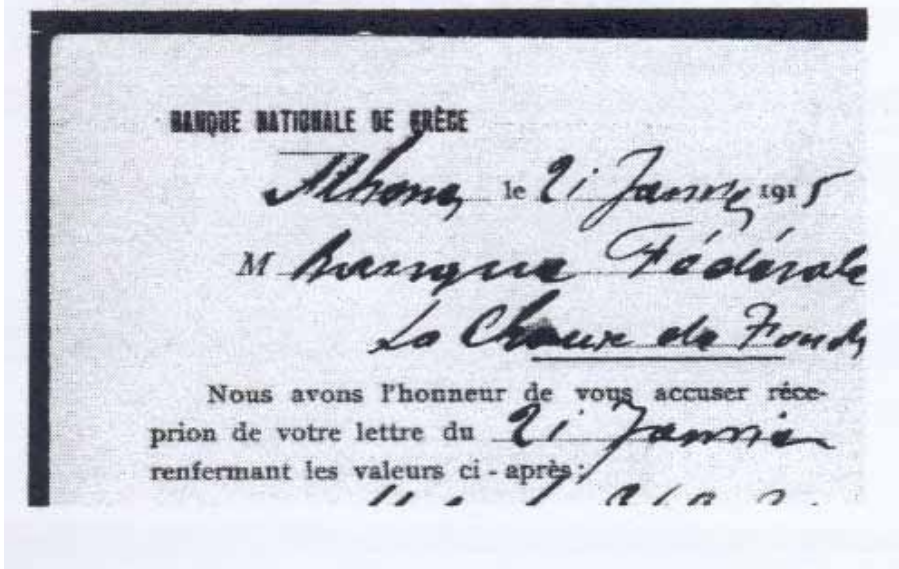 BANQUE NATIONALE DE GRÈCE
Athènes, le 21 Janvier 1915
M Banque Fédérale
La Chaux de Fonds
Nous avons l'honneur de vous accuser réce-
prion de votre lettre du 21 Janvier
renfermant les valeurs ci-après: